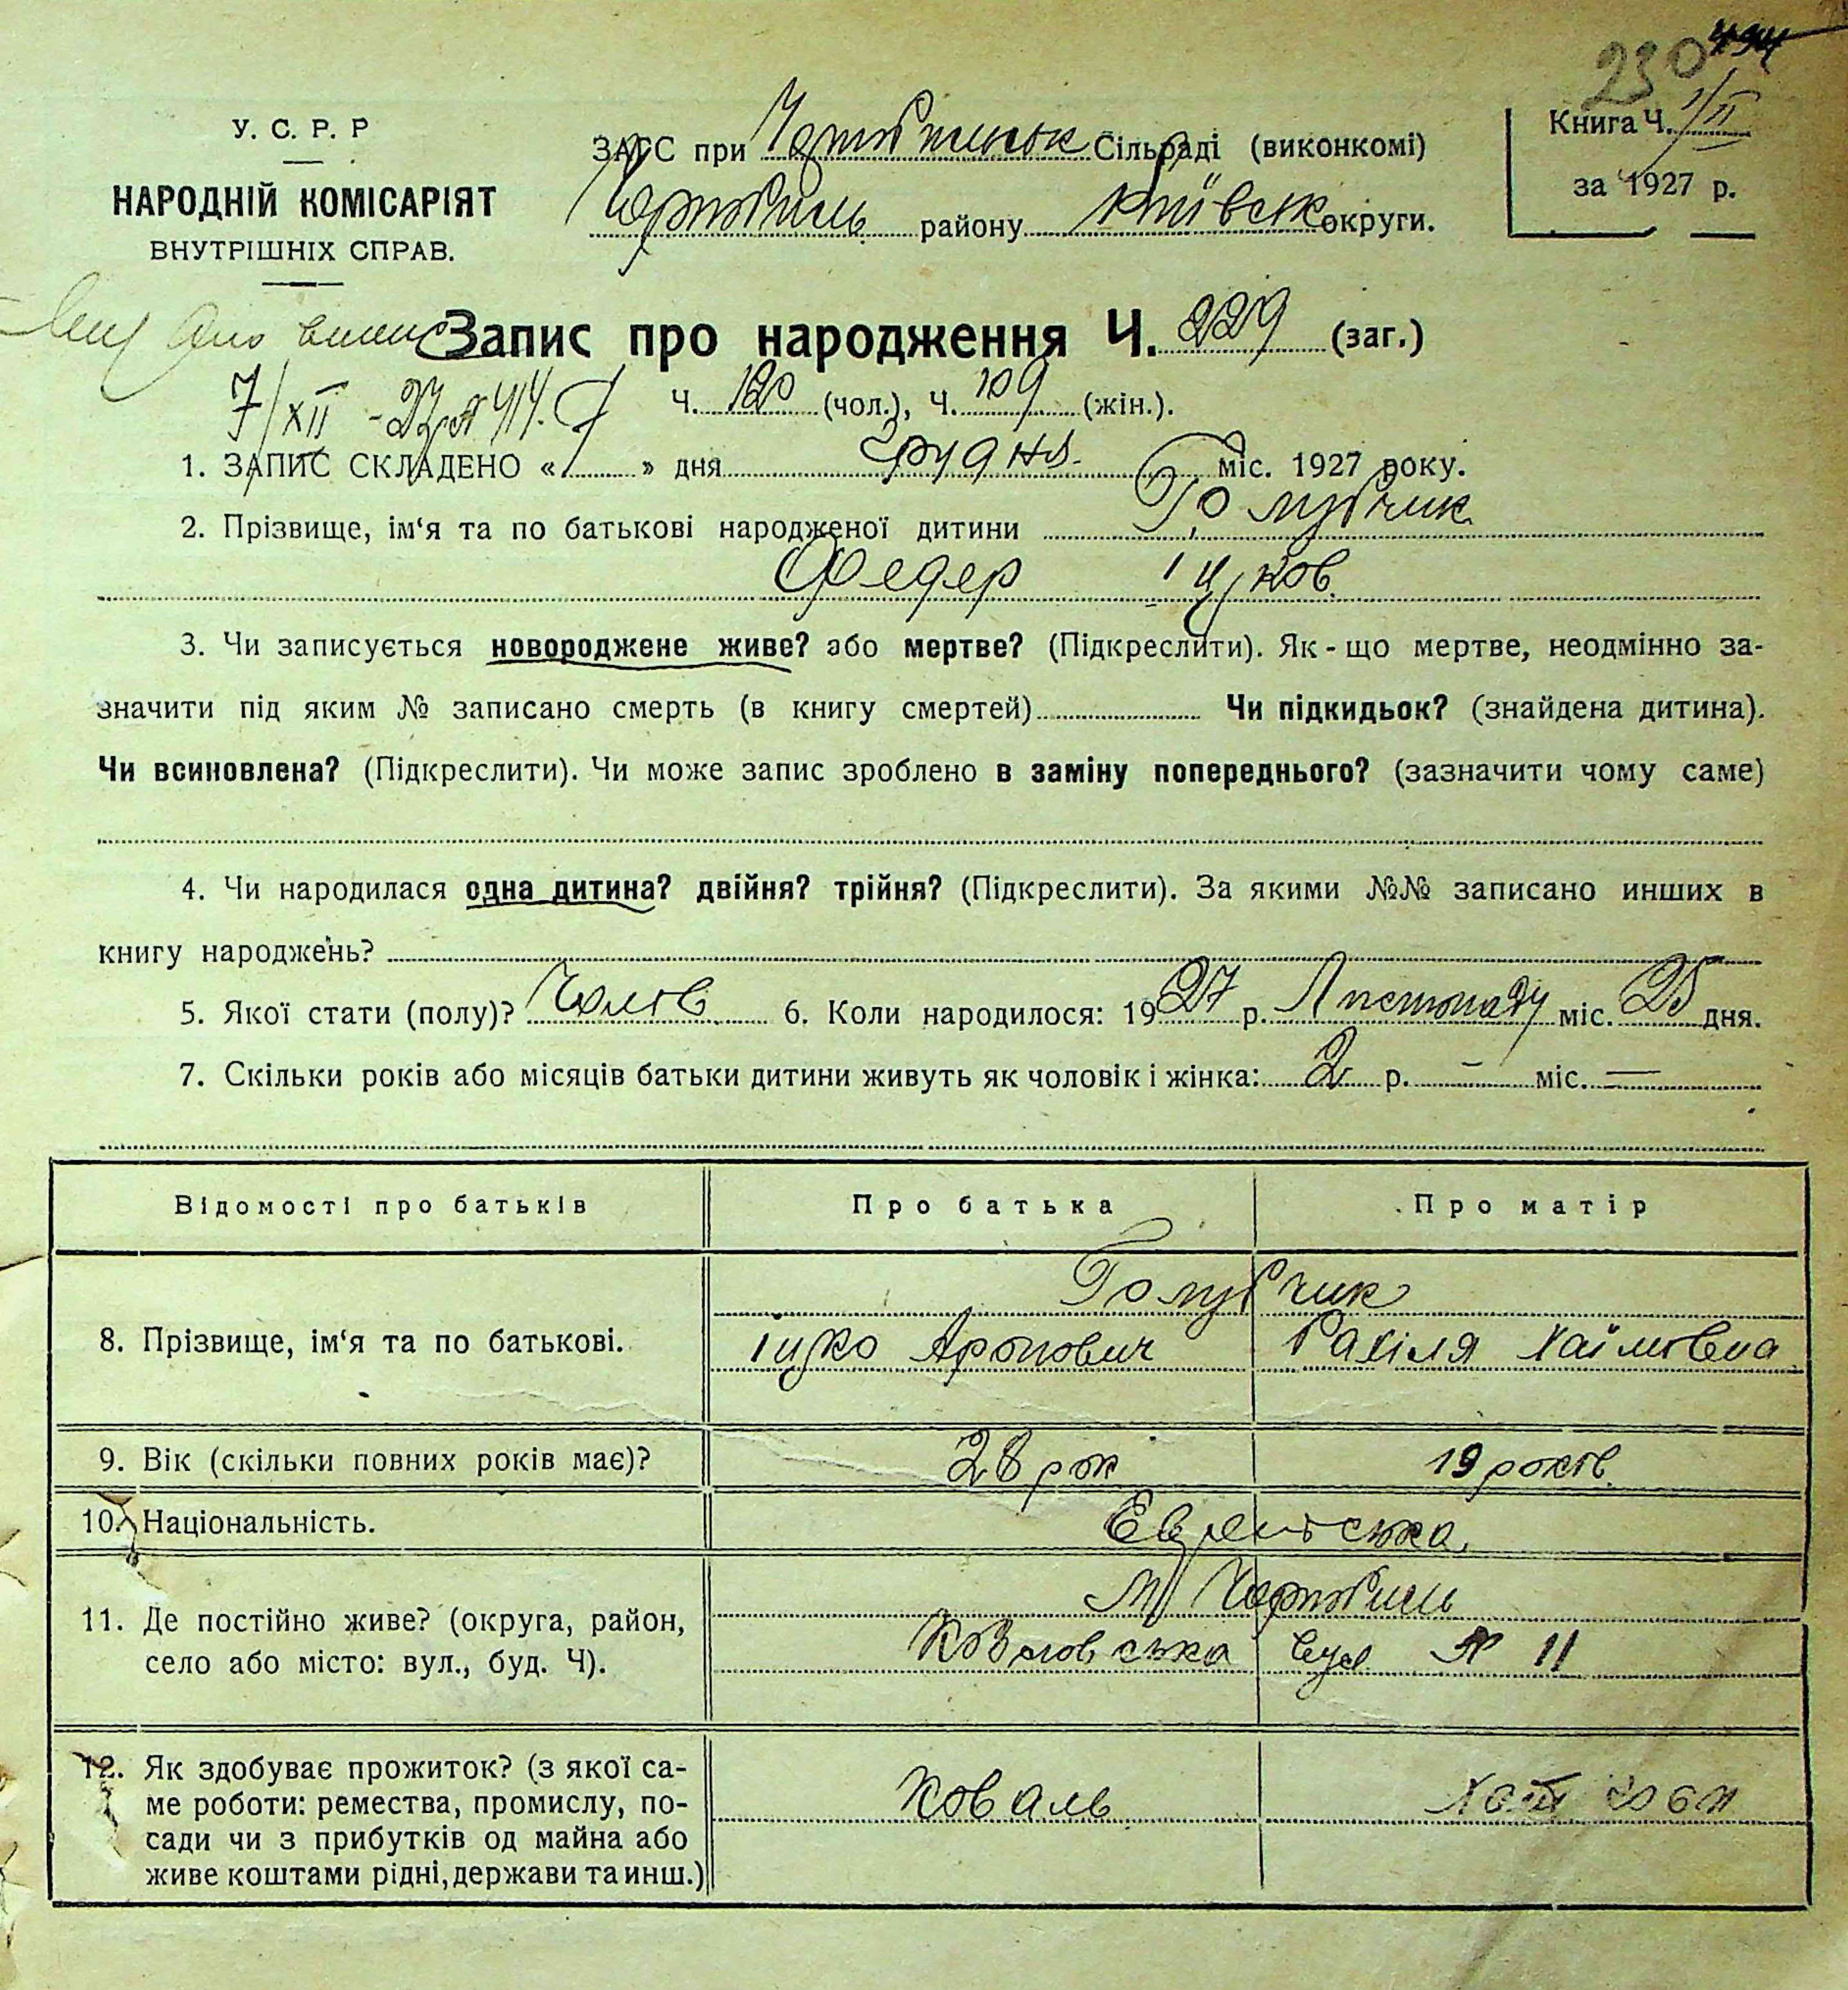 230
У. С. Р. Р
НАРОДНІЙ КОМІСАРІЯТ
ВНУТРІШНІХ СПРАВ.
ЗАГС при Чорнобильськ Сільраді (виконкомі)
Чорнобиль району Київськ округи.
Книга Ч. 1/II
за 1927 р.
Запис про народження Ч. 229 (заг.)
7/XII - 27 р № 414.
Ч. 120 (чол.), Ч. 109 (жін.).
1. ЗАПИС СКЛАДЕНО « 7 » дня грудня міс. 1927 року.
2. Прізвище, ім‘я та по батькові народженої дитини Голубчик
Федер Іцков.
3. Чи записується новороджене живе? або мертве? (Підкреслити). Як-що мертве, неодмінно за-
значити під яким № записано смерть (в книгу смертей) Чи підкидьок? (знайдена дитина).
Чи всиновлена? (Підкреслити). Чи може запис зроблено в заміну попереднього? (зазначити чому саме)
4. Чи народилася одна дитина? двійня? трійня? (Підкреслити). За якими №№ записано инших в
книгу народжень?
5. Якої стати (полу)? Чолов. 6. Коли народилося: 1927 р. Листопаду міс. 25 дня.
7. Скільки років або місяців батьки дитини живуть як чоловік і жінка: 2 р. – міс. —
Відомості про батьків Про батька Про матір
Голубчик
8. Прізвище, ім‘я та по батькові. Іцко Аронович Рахіля Хаімовна
9. Вік (скільки повних років має)? 28 рок 19 років.
10. Національність. Еврейська.
М Чорнобиль
11. Де постійно живе? (округа, район,
село або місто: вул., буд. Ч). Ковалівська вул № 11
12. Як здобуває прожиток? (з якої са-
ме роботи: ремества, промислу, по-
сади чи з прибутків од майна або
живе коштами рідні, держави та инш.)
Коваль Хат роби